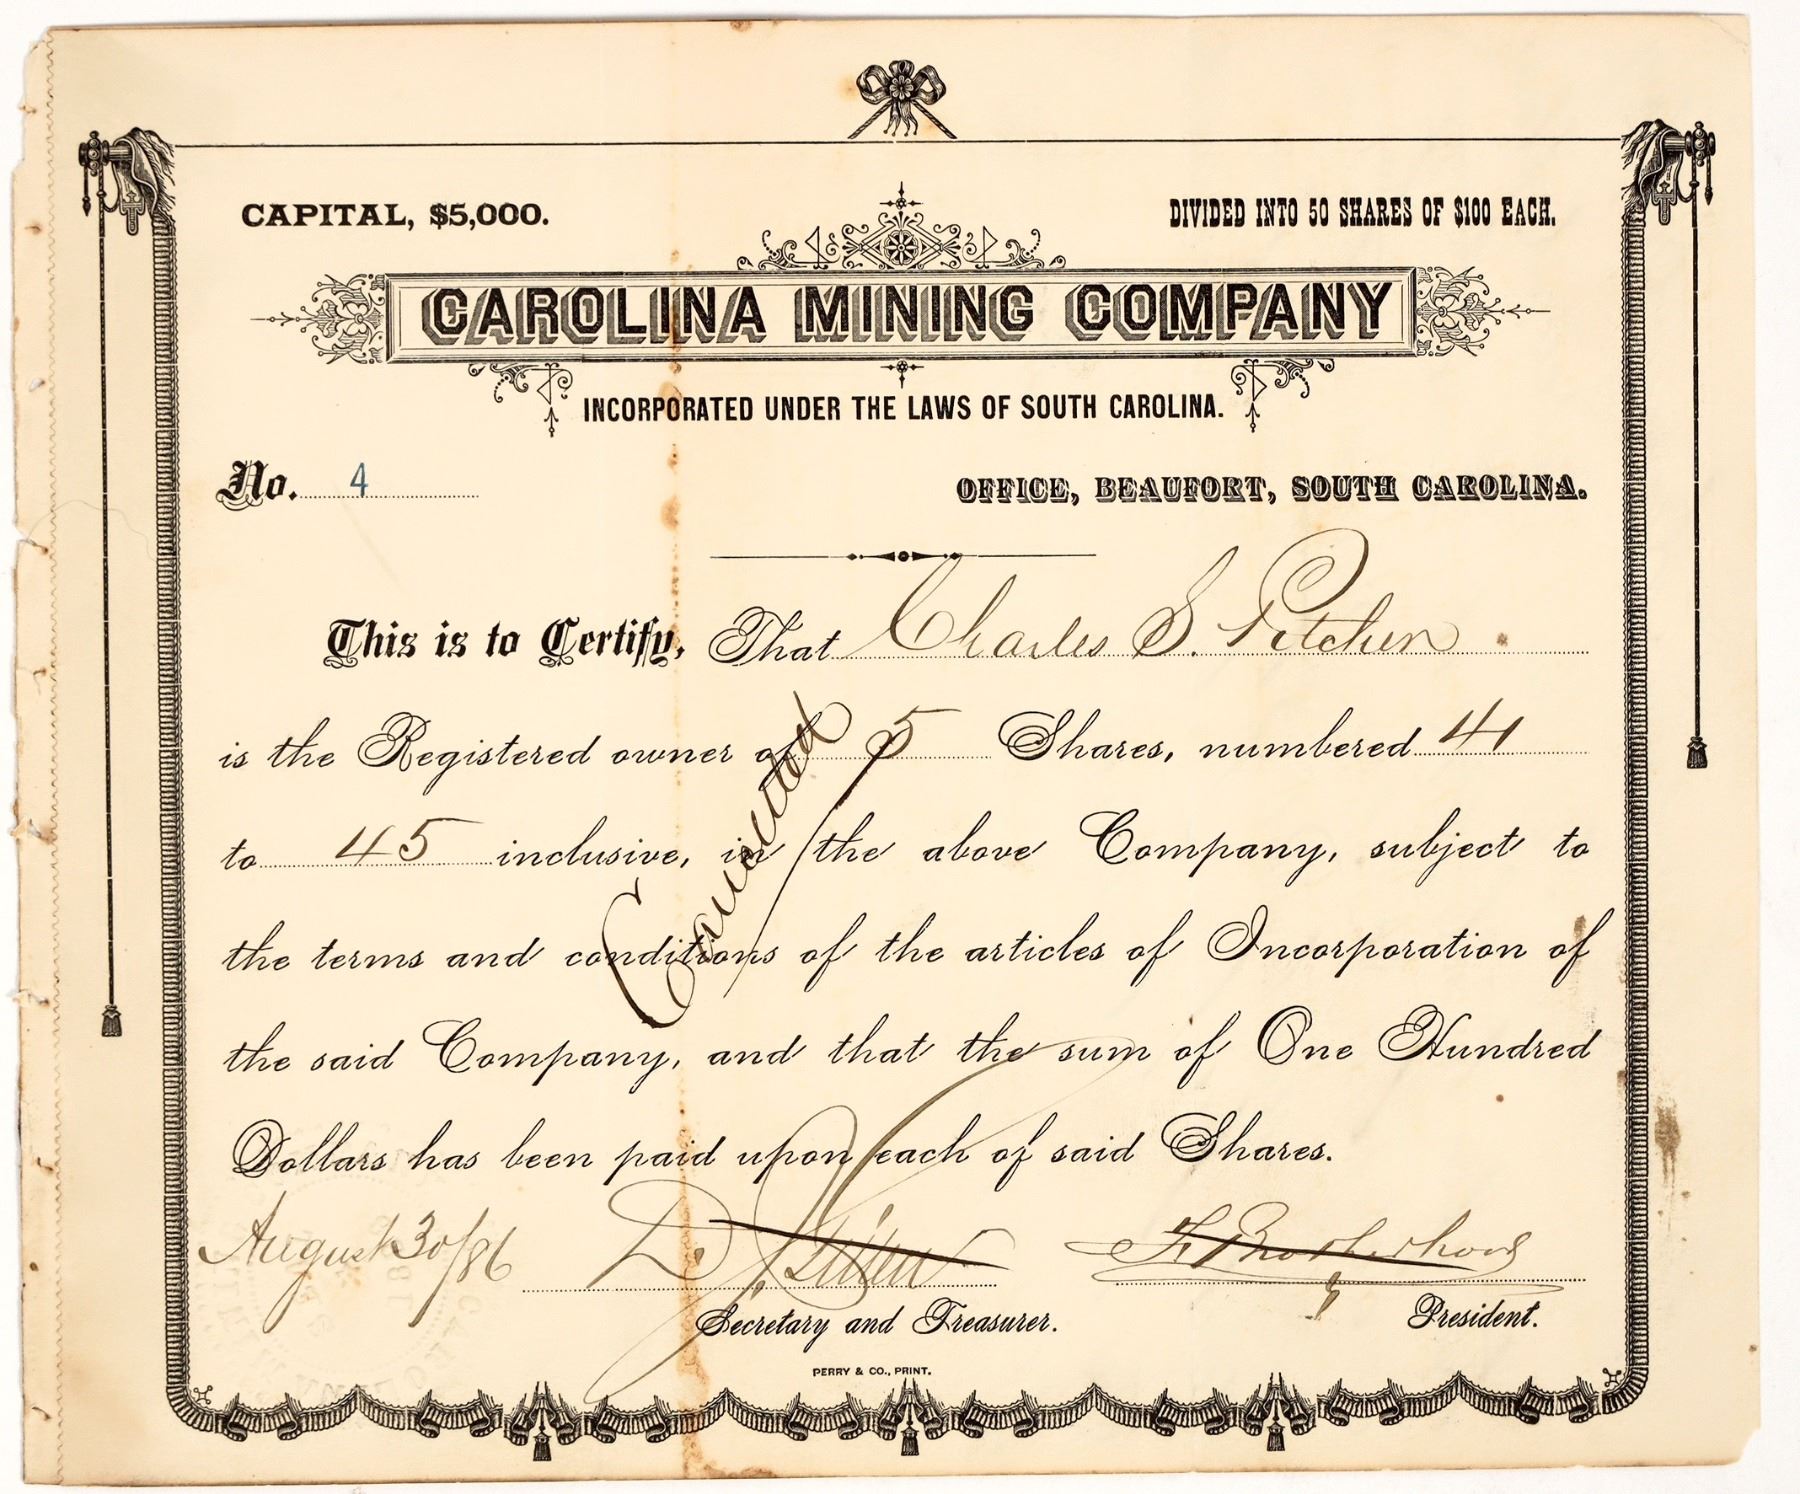 CAPITAL, $5,000.
DIVIDED INTO 50 SHARES OF $100 EACH.
CAROLINA MINING COMPANY
INCORPORATED UNDER THE LAWS OF SOUTH CAROLINA.
No. 4
OFFICE, BEAUFORT, SOUTH CAROLINA.
This is to Certify, That Charles S. Pitcher
is the Registered owner of 5 Shares, numbered 41
to 45 inclusive, in the above Company, subject to
the terms and conditions of the articles of Incorporation of
the said Company, and that the sum of One Hundred
Dollars has been paid upon each of said Shares.
Cancelled
August 30/86
F Brotherhood
Secretary and Treasurer.
President.
PERRY & CO., PRINT.